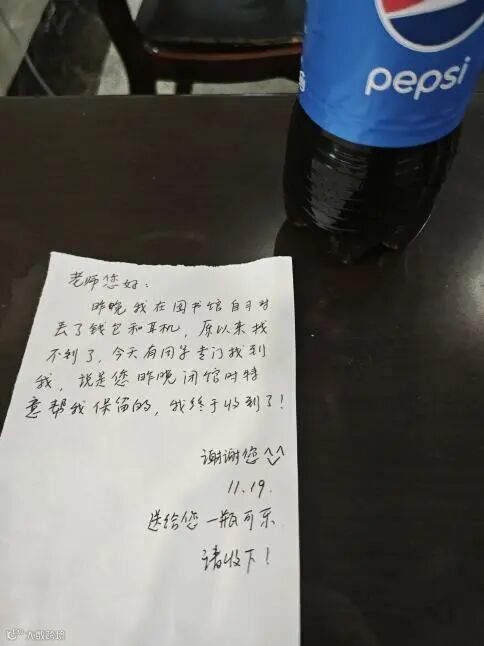 pepsi
老师您好：
昨晚我在图书馆自习时
丢了钱包和耳机，原以来找
不到了，今天有同学专门找到
我，说是您昨晚闭馆时特
意帮我保留的，我终于收到了！
谢谢您^^
11.19.
送给您一瓶可乐
请收下！